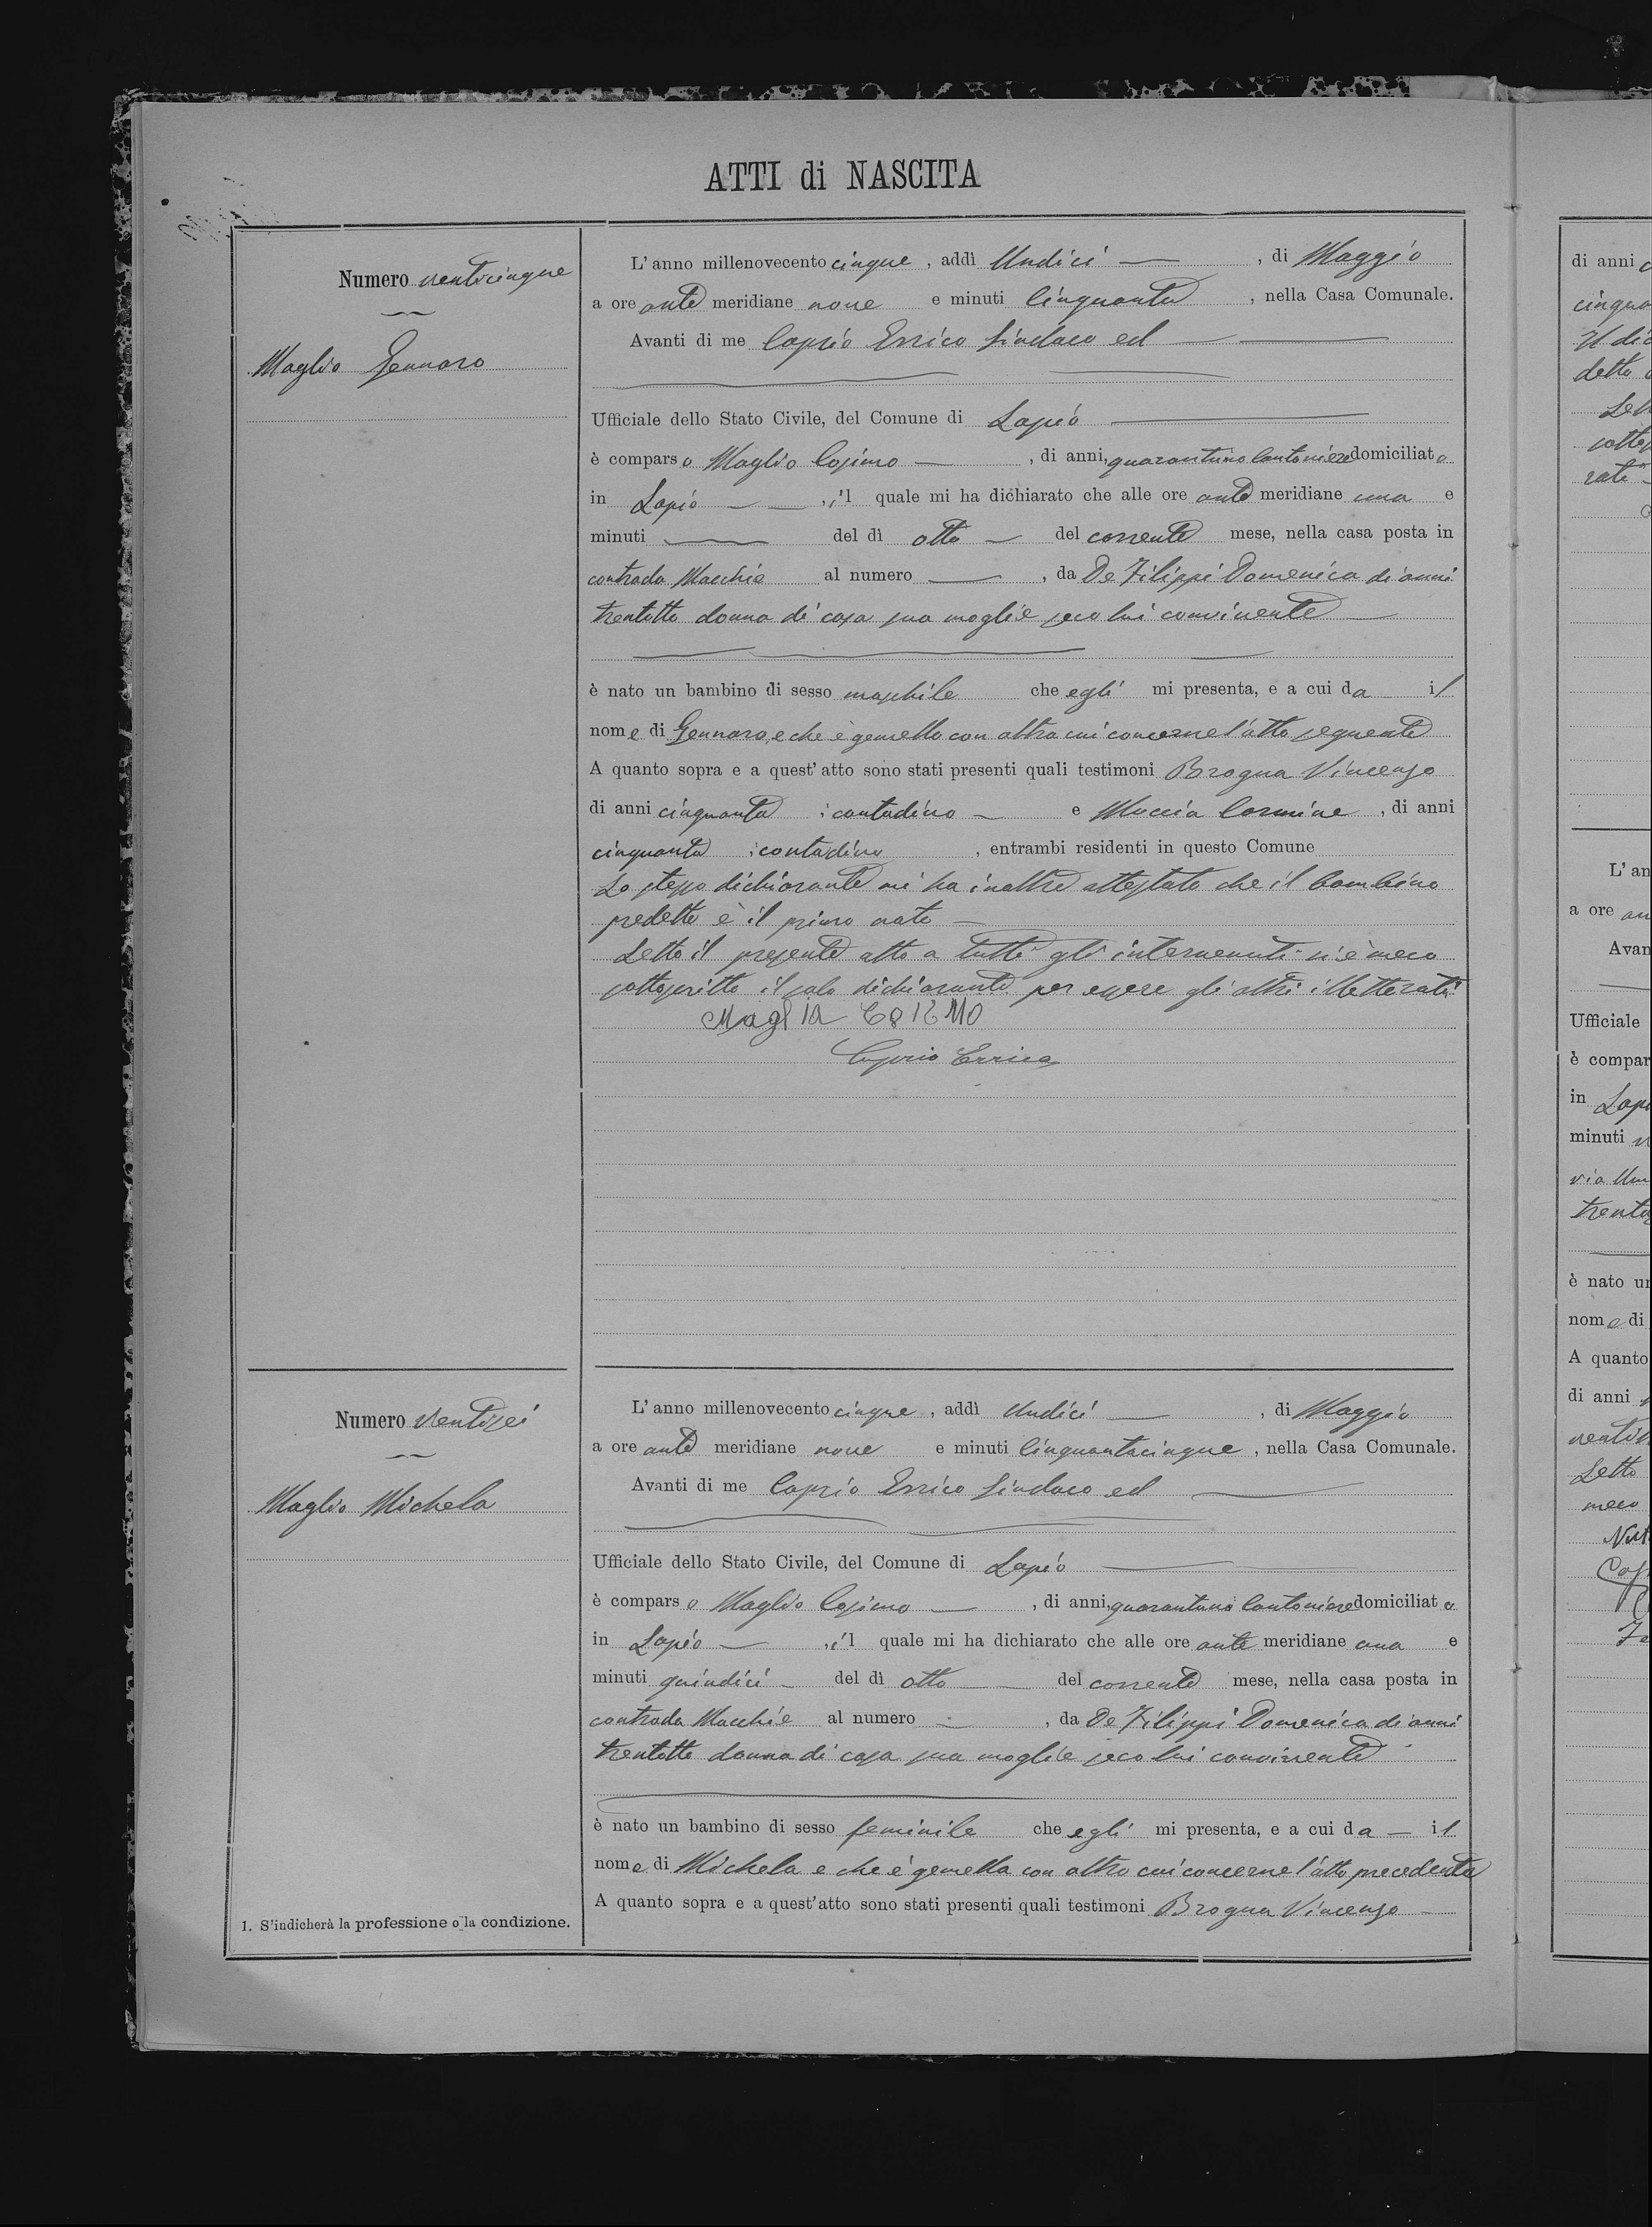 ATTI di NASCITA
Numero venticinque
Maglio Gennaro
L'anno millenovecento cinque, addì Undici, di Maggio
a ore ante meridiane nove e minuti cinquanta, nella Casa Comunale.
Avanti di me Caprio Errico Sindaco ed
Ufficiale dello Stato Civile, del Comune di Lapio
è comparso Maglio Cosimo, di anni quarantuno Cantoniere domiciliato
in Lapio, il quale mi ha dichiarato che alle ore ante meridiane una e
minuti del dì otto del corrente mese, nella casa posta in
contrada Macchie al numero, da De Filippi Domenica di anni
trentotto donna di casa sua moglie seco lui convivente
è nato un bambino di sesso maschile che egli mi presenta, e a cui da il
nome di Gennaro, e che è gemello con altra cui concerne l'atto seguente
A quanto sopra e a quest'atto sono stati presenti quali testimoni Brogna Vincenzo
di anni cinquanta contadino e Muccia Carmine, di anni
cinquanta contadino, entrambi residenti in questo Comune
Lo stesso dichiarante mi ha inoltre attestato che il bambino
predetto è il primo nato
Letto il presente atto a tutti gli intervenuti si è meco
sottoscritto il solo dichiarante per essere gli altri illetterati
Caprio Errico
Numero ventisei
Maglio Michela
L'anno millenovecento cinque, addì Undici, di Maggio
a ore ante meridiane nove e minuti cinquantacinque, nella Casa Comunale.
Avanti di me Caprio Errico Sindaco ed
Ufficiale dello Stato Civile, del Comune di Lapio
è comparso Maglio Cosimo, di anni quarantuno Cantoniere domiciliato
in Lapio, il quale mi ha dichiarato che alle ore ante meridiane una e
minuti quindici del dì otto del corrente mese, nella casa posta in
contrada Macchie al numero, da De Filippi Domenica di anni
trentotto donna di casa sua moglie seco lui convivente
è nato un bambino di sesso feminile che egli mi presenta, e a cui da il
nome di Michela e che è gemella con altro cui concerne l'atto precedente
A quanto sopra e a quest'atto sono stati presenti quali testimoni Brogna Vincenzo
1. S'indicherà la professione o la condizione.
di anni
detto
in
minuti
L'an
a ore
Avan
Ufficiale
è compar
è nato un
nome di
A quanto
di anni
Letto
meco